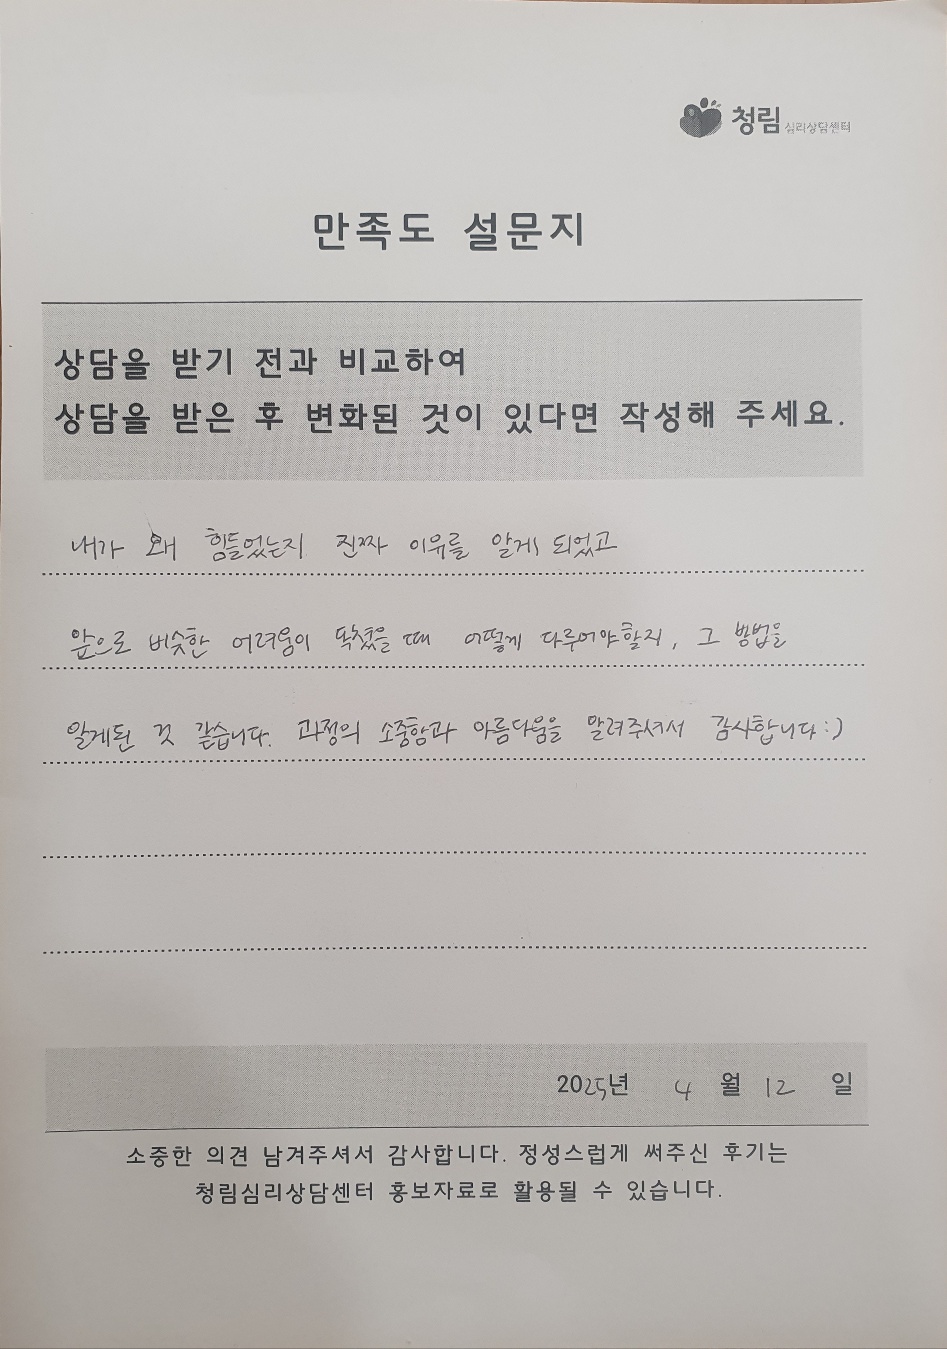 청림 심리상담센터
만족도 설문지
상담을 받기 전과 비교하여
상담을 받은 후 변화된 것이 있다면 작성해 주세요.
내가 왜 힘들었는지 진짜 이유를 알게 되었고
앞으로 비슷한 어려움이 닥쳤을 때 어떻게 다루어야할지, 그 방법을
알게된 것 같습니다. 과정의 소중함과 아름다움을 알려주셔서 감사합니다:)
2025년 4 월 12 일
소중한 의견 남겨주셔서 감사합니다. 정성스럽게 써주신 후기는
청림심리상담센터 홍보자료로 활용될 수 있습니다.